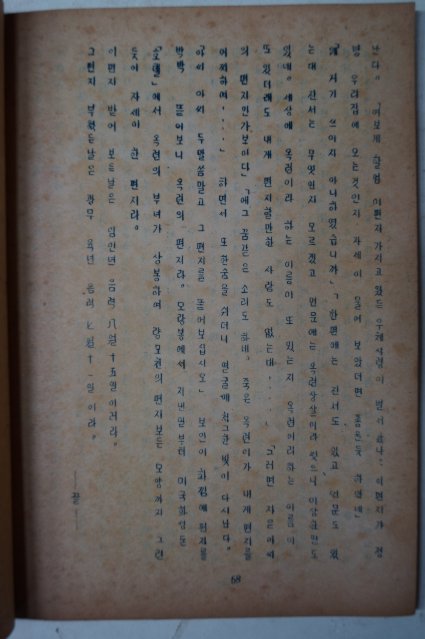 난다。「여보게 할멈 이편지 가지고 왔든 우체사령이 벌서 갔나。 이편지가 정
녕 우리집에 오는것인지 자세이 물어 보았더면 좋흔듯 하였네」
「웨 저기 쓰이지 아니하였습니까」「한편에는 진서도 있고 언문도 있
는대 진서는 무엇인지 모르겠고 언문에는 옥련 이라 썼으니 이상한말도
있네。세상에 옥련이라 하는 이름이 또 있는지 옥련이라하는 이름이
또 있더래도 내게 편지할만한 사람도 없는대····」「그러면 자근아씨
의 편지인가보이다」「에그 꿈같은 소리도 하네。죽은 옥련이가 내게 편지를
어찌하여····」하면서 또 한숨을 쉬더니 얼굴에 처그한 빛이 다시난다。
「아씨 아씨 두말씀말고 그 편지를 뜯어보십시오」 부인이 화낌에 편지를
박박 뜯어보니 옥련의 편지라。모란봉에서 지낸일부터 미국화성돈
「호텔」에서 옥련의 부녀가 상봉하여 량모친의 편지보든 모양까지 그린
듯이 자세이 한 편지라。
이편지 받어 보든날은 임인년 음력 八월十五일 이러라。
그편지 부쳤든날은 광무 륙년 음력 七월十一일이라。
――끝――
68